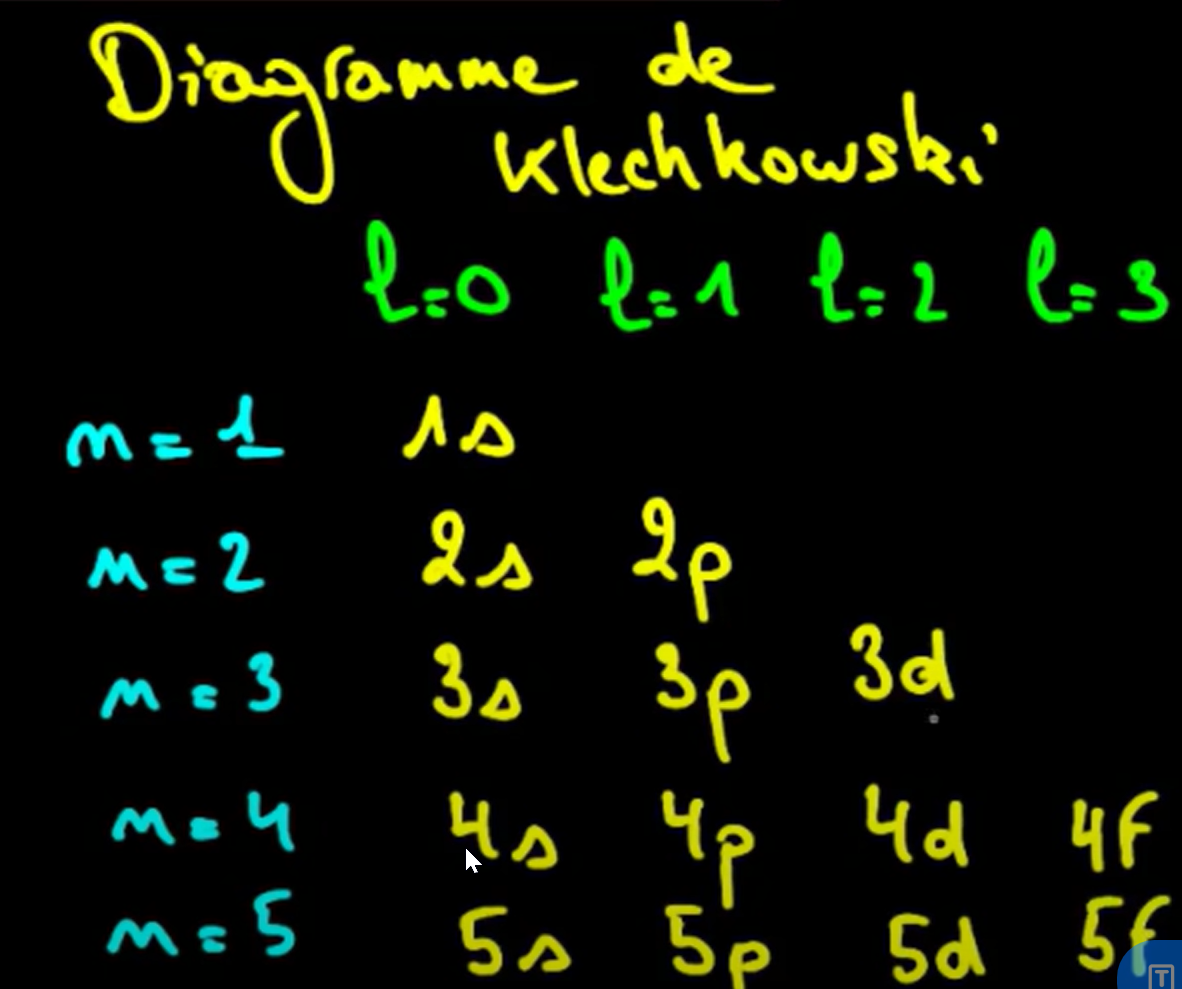 Diagramme de
Klechkowski
l=0 l=1 l=2 l=3
n=1 1s
n=2 2s 2p
n=3 3s 3p 3d
n=4 4s 4p 4d 4f
n=5 5s 5p 5d 5f
T